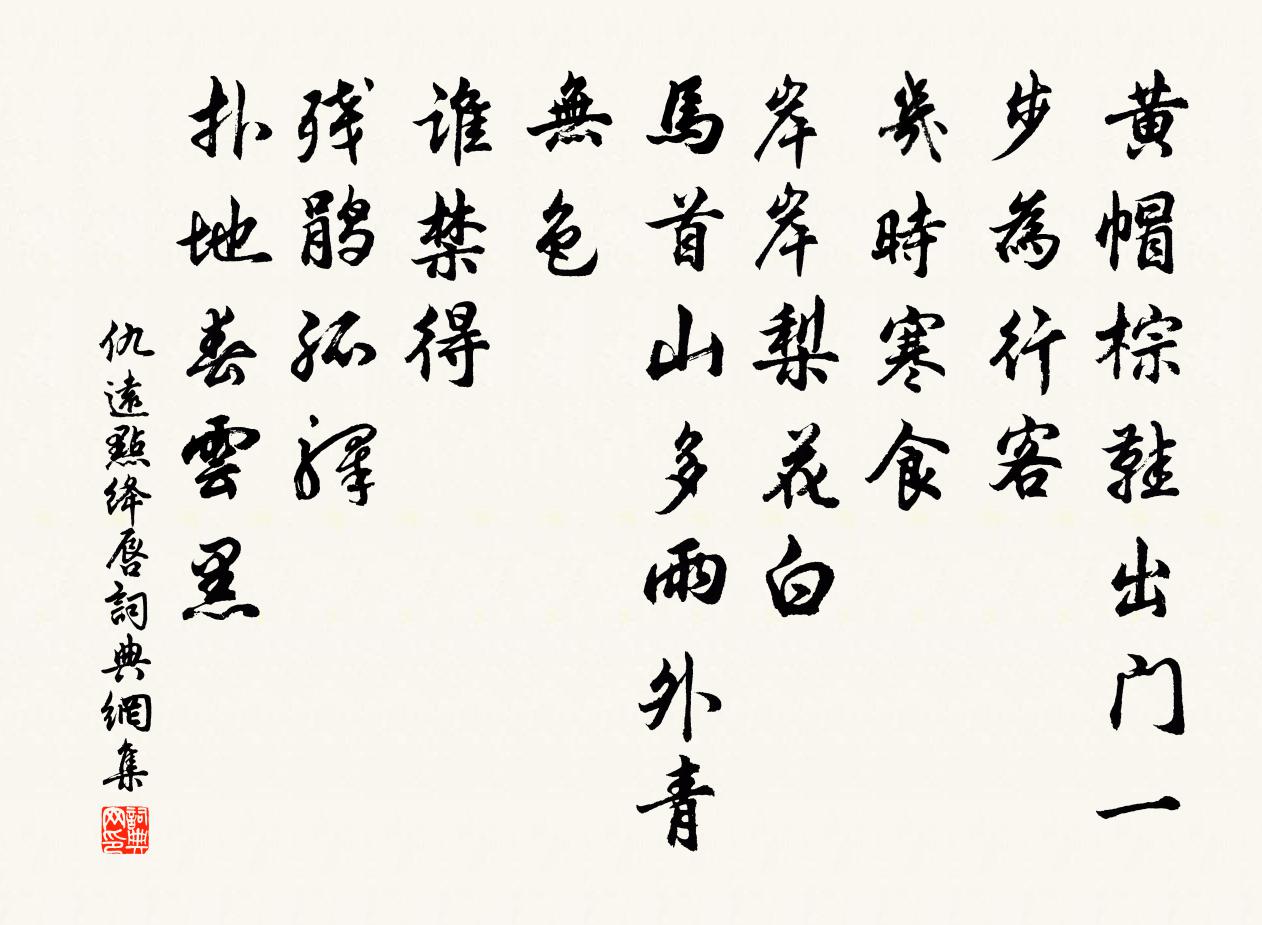 黄帽棕鞋出门一
步為行客
幾時寒食
岸岸梨花白
馬首山多雨外青
無色
誰禁得
残鹃孤驛
扑地春雲黑
仇遠點絳唇詞典網集
詞典网印